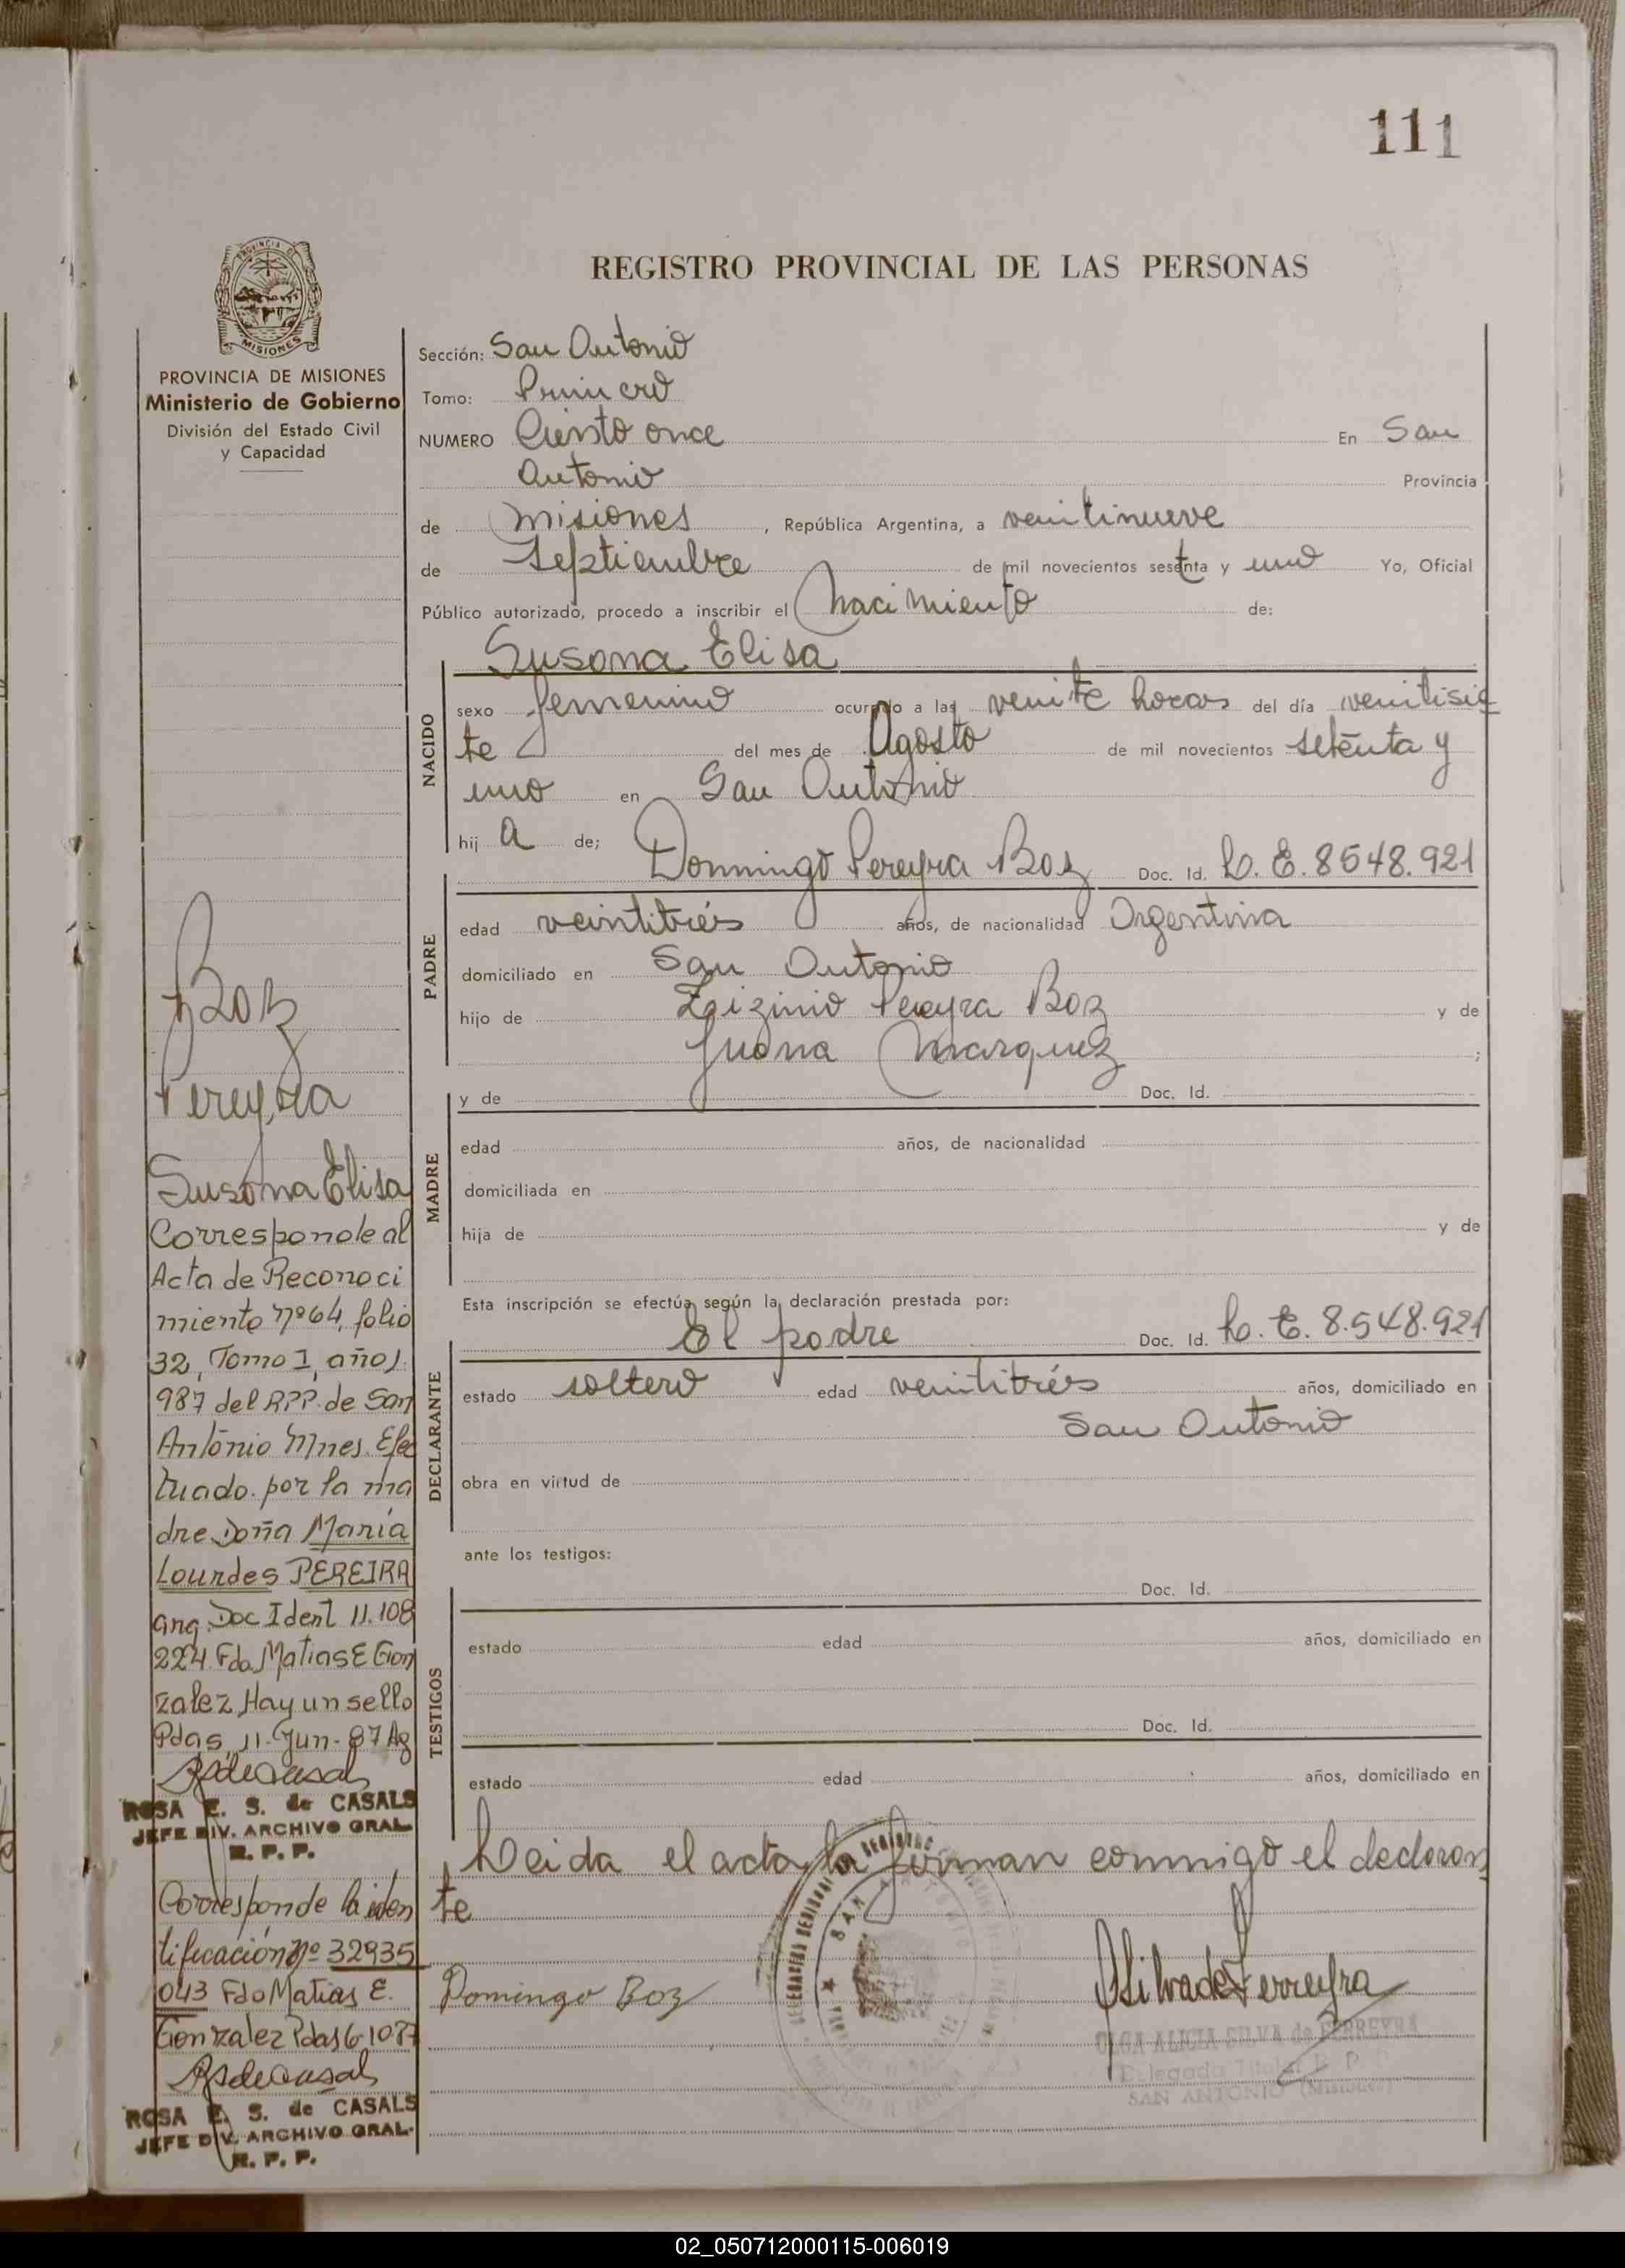 111
PROVINCIA DE
MISIONES
PROVINCIA DE MISIONES
Ministerio de Gobierno
División del Estado Civil
y Capacidad
REGISTRO PROVINCIAL DE LAS PERSONAS
Sección: San Antonio
Tomo: Primero
NUMERO Ciento once En San
Antonio Provincia
de Misiones, República Argentina, a veintinueve
de Septiembre de mil novecientos setenta y uno Yo, Oficial
Público autorizado, procedo a inscribir el Nacimiento de:
Susana Elisa
NACIDO
sexo femenino ocurrido a las veinte horas del día veintisie
te del mes de Agosto de mil novecientos setenta y
uno en San Antonio
hij a de;
Domingo Pereyra Boz Doc. Id. L. E. 8548.921
PADRE
edad veintitrés años, de nacionalidad Argentina
domiciliado en San Antonio
hijo de Pereyra Boz y de
Juana Marquez ;
y de Doc. Id.
MADRE
edad años, de nacionalidad
domiciliada en
hija de y de
Esta inscripción se efectúa según la declaración prestada por:
El padre Doc. Id. L. E. 8.548.921
DECLARANTE
estado soltero edad veintitrés años, domiciliado en
San Antonio
obra en virtud de
ante los testigos:
Doc. Id.
TESTIGOS
estado edad años, domiciliado en
Doc. Id.
estado edad años, domiciliado en
Leida el acta, la firman conmigo el declaran
te
Domingo Boz
OLGA ALICIA SILVA de FERREYRA
Delegada Titular R. P. P.
SAN ANTONIO (Misiones)
Boz
Pereyra
Susana Elisa
Corresponde al
Acta de Reconoci
miento Nº 64, folio
32, Tomo I, año 1.
987 del RPP. de San
António Mnes. Efec
tuado por la ma
dre Doña María
Lourdes PEREIRA
arg. Doc Ident 11.108
224. Fdo. Matias E Gon
zalez, Hay un sello
Pdas, 11-Jun-87 Ag
ROSA E. S. de CASALS
JEFE DIV. ARCHIVO GRAL.
R. P. P.
Corresponde la iden
tificación Nº 32935
043 Fdo Matias E.
Gonzalez Pdas
ROSA E. S. de CASALS
JEFE DIV. ARCHIVO GRAL.
R. P. P.
02_050712000115-006019